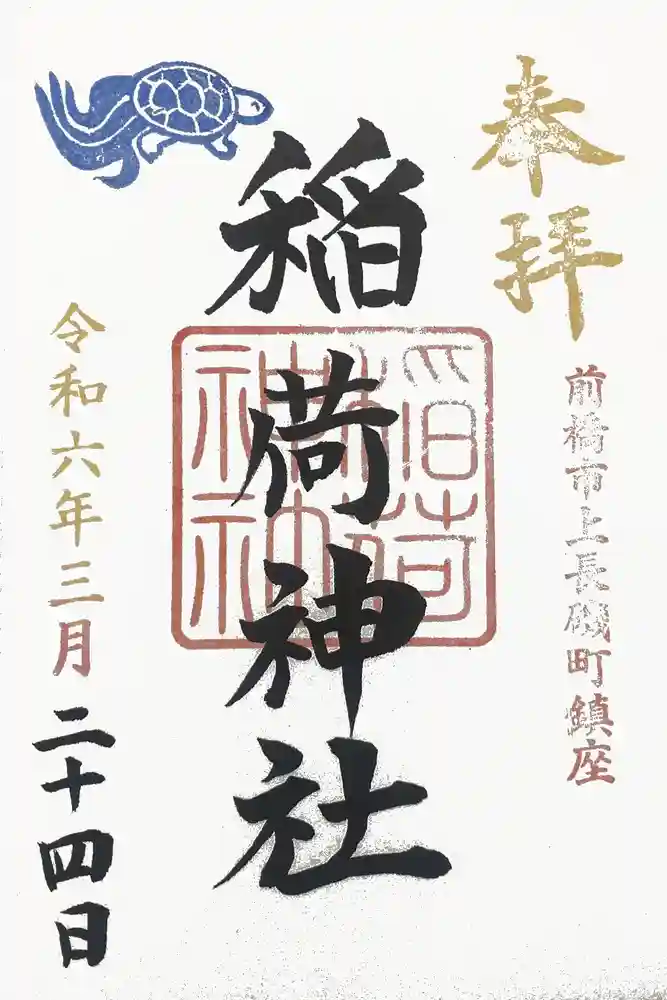 奉拝
前橋市上長磯町鎮座
稲荷神社
稲荷神社
令和六年三月二十四日